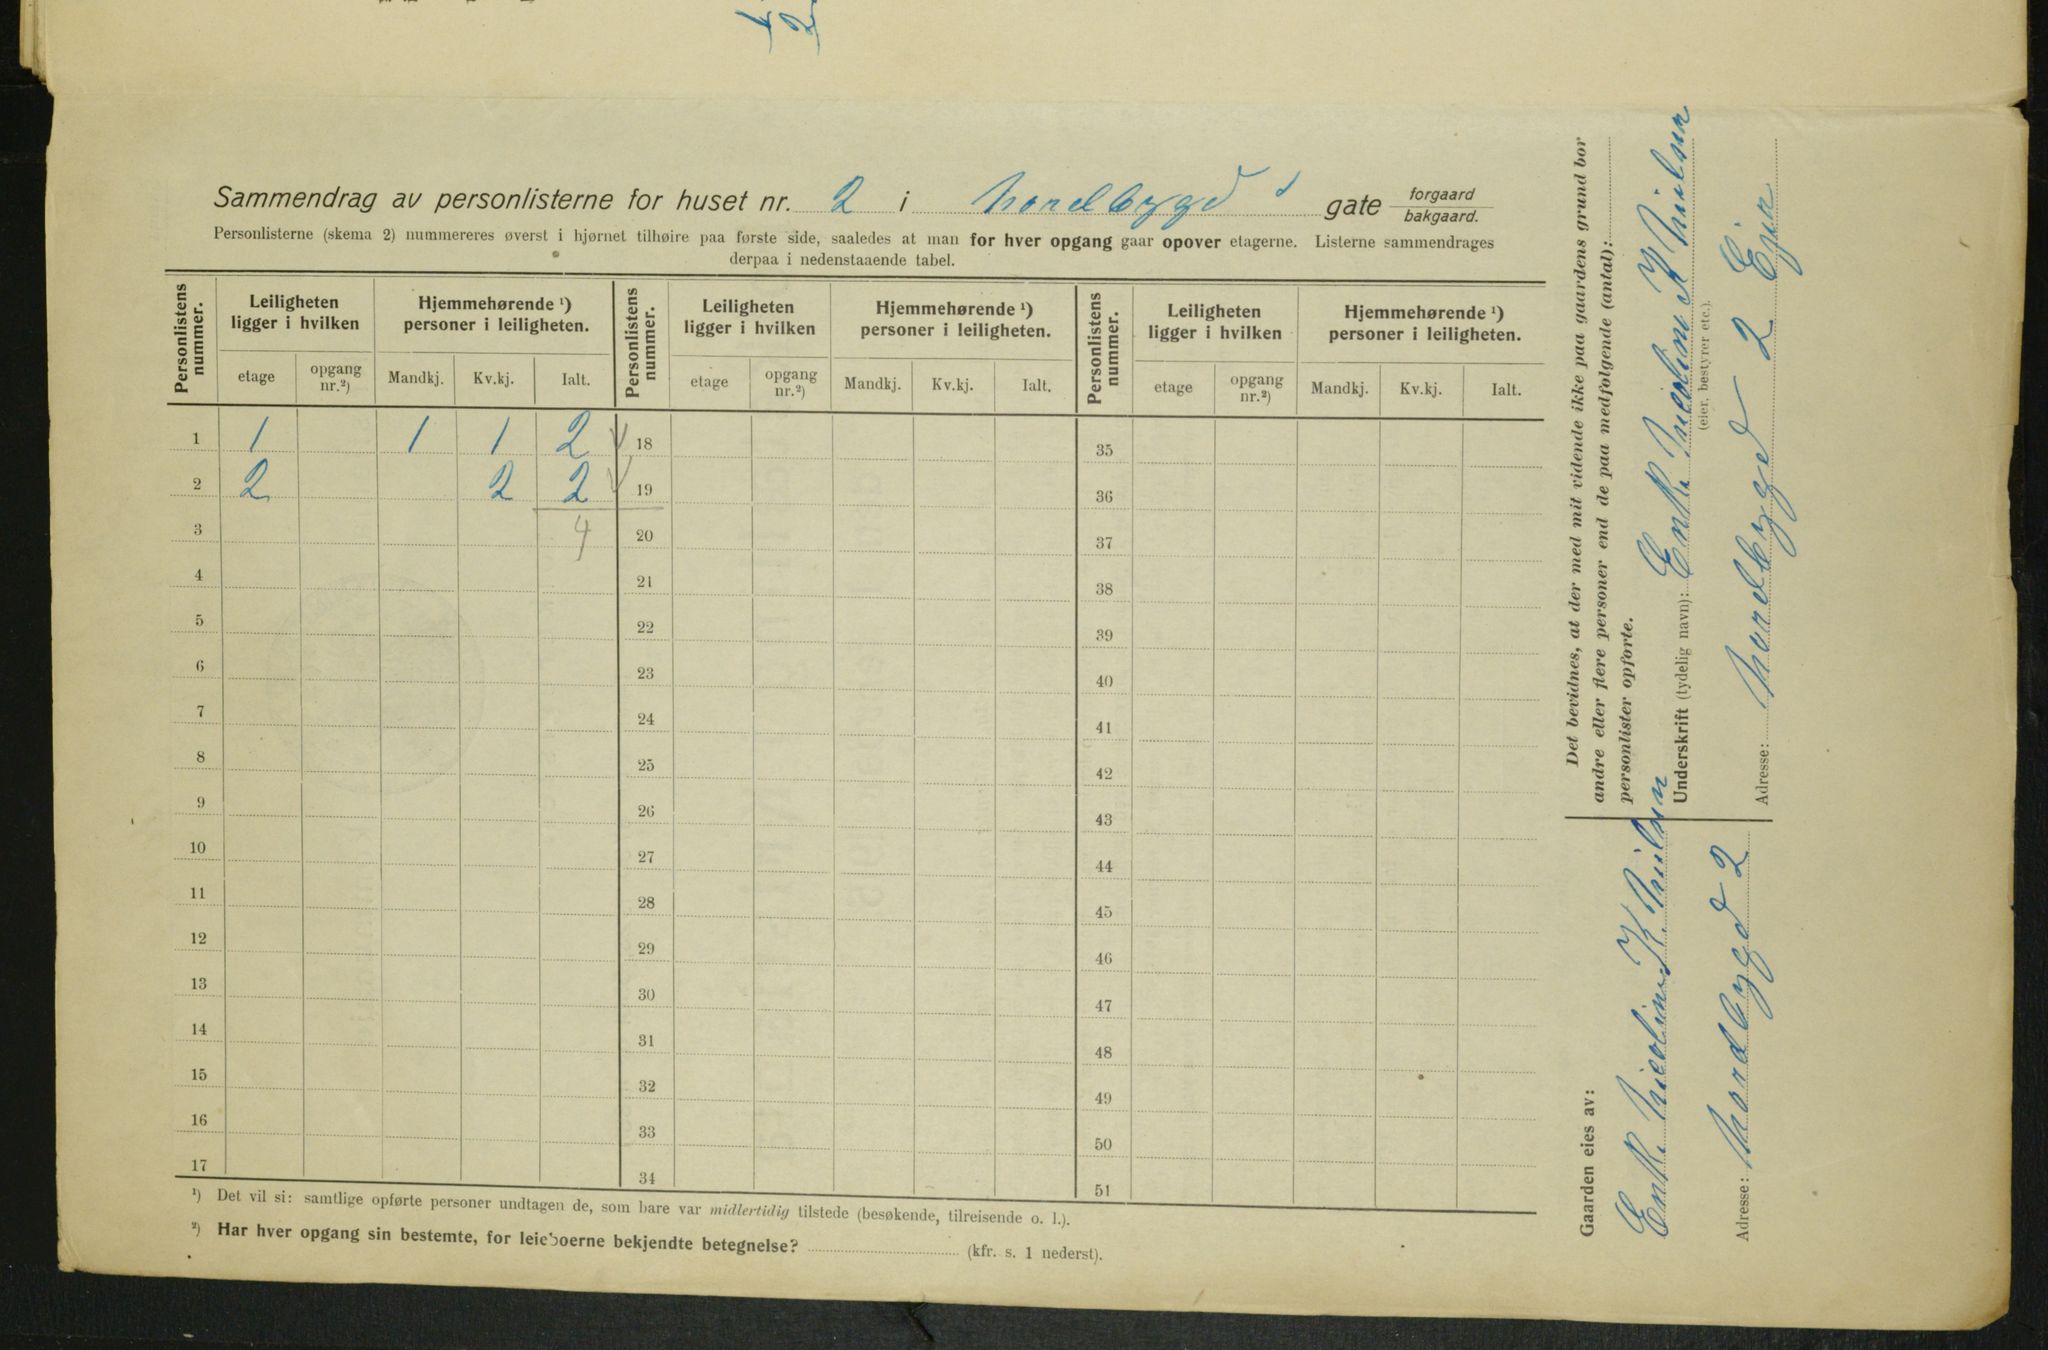 Sammendrag av personlisterne for huset nr. 2 i Nordbygd s gate forgaard bakgaard.
Personlisterne (skema 2) nummereres øverst i hjørnet tilhøire paa første side, saaledes at man for hver opgang gaar opover etagerne. Listerne sammendrages
derpaa i nedenstaaende tabel.
Personlistens nummer. Leiligheten ligger i hvilken Hjemmehørende ¹) personer i leiligheten. Personlistens nummer. Leiligheten ligger i hvilken Hjemmehørende ¹) personer i leiligheten. Personlistens nummer. Leiligheten ligger i hvilken Hjemmehørende ¹) personer i leiligheten.
etage opgang nr.²) Mandkj. Kv.kj. Ialt. etage opgang nr.²) Mandkj. Kv.kj. Ialt. etage opgang nr.²) Mandkj. Kv.kj. Ialt.
1 1 1 1 2 18 35
2 2 2 2 19 36
3 4 20 37
4 21 38
5 22 39
6 23 40
7 24 41
8 25 42
9 26 43
10 27 44
11 28 45
12 29 46
13 30 47
14 31 48
15 32 49
16 33 50
17 34 51
¹) Det vil si: samtlige opførte personer undtagen de, som bare var midlertidig tilstede (besøkende, tilreisende o. l.).
²) Har hver opgang sin bestemte, for leieboerne bekjendte betegnelse? (kfr. s. 1 nederst).
Det bevidnes, at der med mit vidende ikke paa gaardens grund bor
andre eller flere personer end de paa medfølgende (antal):
personlister opførte.
Underskrift (tydelig navn): Enke Nicoline K Nilsen
(eier, bestyrer etc.).
Adresse: Nordbygd 2 Eier
Gaarden eies av:
Enke Nicoline K. Nilsen
Adresse: Nordbygd 2